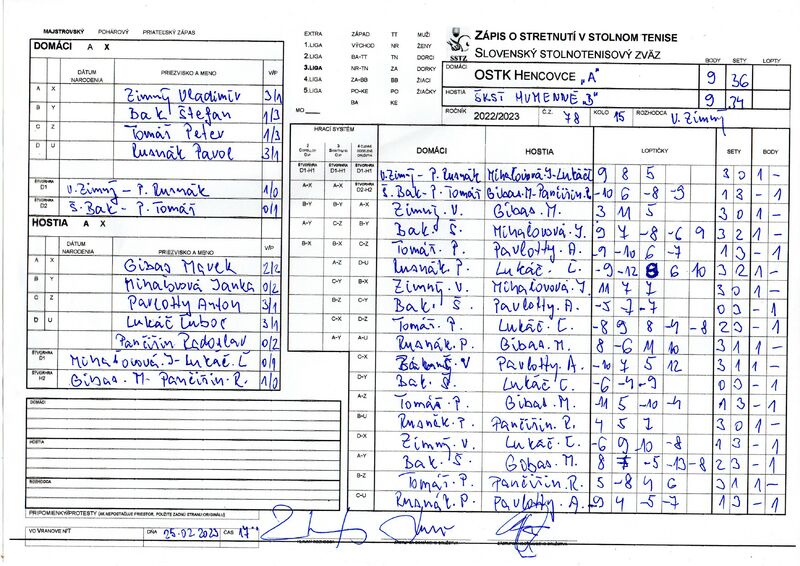 MAJSTROVSKÝ POHÁROVÝ PRIATEĽSKÝ ZÁPAS
DOMÁCI A X
DÁTUM NARODENIA PRIEZVISKO A MENO V/P
A X Zimný Vladimír 3/1
B Y Bak Štefan 1/3
C Z Tomáš Peter 1/3
D U Rusnák Pavol 3/1
ŠTVORHRA D1 V. Zimný - P. Rusnák 1/0
ŠTVORHRA D2 Š. Bak - P. Tomáš 0/1
HOSTIA A X
DÁTUM NARODENIA PRIEZVISKO A MENO V/P
A X Gibas Marek 2/2
B Y Mihaľovová Janka 0/2
C Z Pavlotty Anton 3/1
D U Lukáč Ľuboš 3/1
Pančišin Radoslav 0/2
ŠTVORHRA D1 Mihaľovová.J-Lukáč.Ľ 0/1
ŠTVORHRA H2 Gibas.M-Pančišin.R. 1/0
DOMÁCI
HOSTIA
ROZHODCA
PRIPOMIENKY/PROTESTY (AK NEPOSTAČUJE PRIESTOR, POUŽITE ZADNÚ STRANU ORIGINÁLU)
VO VRANOVE N/T DŇA 25.02.2023 ČAS 17
EXTRA ZÁPAD TT MUŽI
1.LIGA VÝCHOD NR ŽENY
2.LIGA BA-TT TN DORCI
3.LIGA NR-TN ZA DORKY
4.LIGA ZA-BB BB ŽIACI
5.LIGA PO-KE PO ŽIAČKY
BA KE
SSTZ
ZÁPIS O STRETNUTÍ V STOLNOM TENISE
SLOVENSKÝ STOLNOTENISOVÝ ZVÄZ
BODY SETY LOPTY
DOMÁCI OSTK HENCOVCE „A" 9 36
HOSTIA ŠKST HUMENNÉ „B" 9 34
ROČNÍK 2022/2023 Č.Z. 78 KOLO 15 ROZHODCA V. Zimný
HRACÍ SYSTÉM
DOMÁCI HOSTIA LOPTIČKY SETY BODY
V.Zimný - P. Rusnák Mihaľovová.J-Lukáč.Ľ 9 8 5 3 0 1 -
Š. Bak - P. Tomáš Gibas.M-Pančišin.R -10 6 -8 -9 1 3 - 1
Zimný. V. Gibas. M. 3 11 5 3 0 1 -
Bak. Š. Mihaľovová. J. 9 7 -8 -6 9 3 2 1 -
Tomáš. P. Pavlotty. A. -9 -10 6 -7 1 3 - 1
Rusnák. P. Lukáč. Ľ. -9 -12 8 6 10 3 2 1 -
Zimný. V. Mihaľovová. J. 11 7 7 3 0 1 -
Bak. Š. Pavlotty. A. -5 -7 -7 0 3 - 1
Tomáš. P. Lukáč. Ľ. -8 9 8 -4 -8 2 3 - 1
Rusnák. P. Gibas. M. 8 -6 11 10 3 1 1 -
Zimný. V Pavlotty. A. -10 7 5 12 3 1 1 -
Bak. Š. Lukáč. Ľ. -6 -4 -9 0 3 - 1
Tomáš. P. Gibas. M. -11 5 -10 -4 1 3 - 1
Rusnák. P. Pančišin. R. 4 5 7 3 0 1 -
Zimný. V. Lukáč. Ľ. -6 9 10 -8 1 3 - 1
Bak. Š. Gibas. M. 8 7 -5 -13 -8 2 3 - 1
Tomáš. P. Pančišin. R. 5 -8 4 6 3 1 1 -
Rusnák. P. Pavlotty. A. -9 4 -5 -7 1 3 - 1